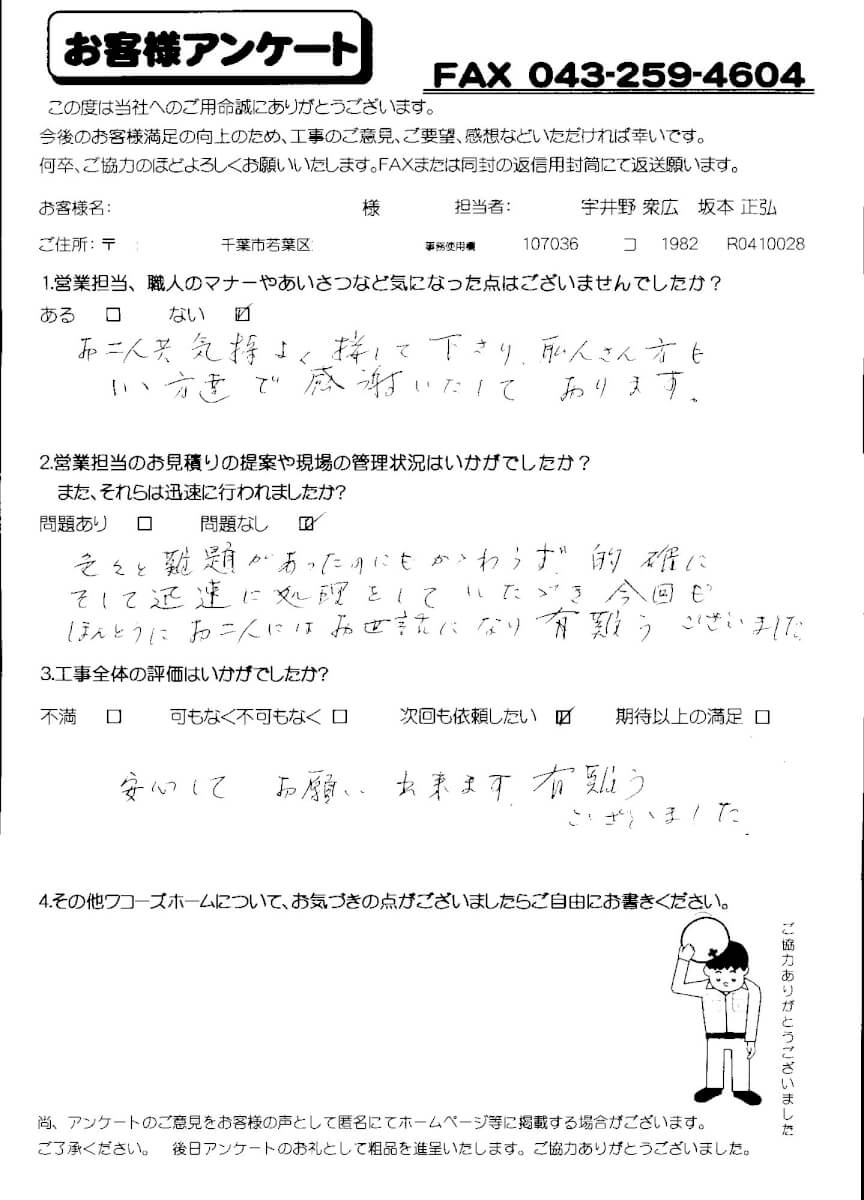 お客様アンケート
FAX 043-259-4604
この度は当社へのご用命誠にありがとうございます。
今後のお客様満足の向上のため、工事のご意見、ご要望、感想などいただければ幸いです。
何卒、ご協力のほどよろしくお願いいたします。FAXまたは同封の返信用封筒にて返送願います。
お客様名: 様 担当者: 宇井野 衆広 坂本 正弘
ご住所:〒 : 千葉市若葉区 事務使用欄 107036 コ 1982 R0410028
1.営業担当、職人のマナーやあいさつなど気になった点はございませんでしたか?
ある □ ない ☑
お二人共気持よく接して下さり、職人さん方も
いい方達で感謝いたして おります。
2.営業担当のお見積りの提案や現場の管理状況はいかがでしたか?
また、それらは迅速に行われましたか?
問題あり □ 問題なし ☑
色々と難題があったのにもかかわらず、的確に
そして迅速に処理をしていただき今回も
ほんとうにお二人にはお世話になり有難うございました
3.工事全体の評価はいかがでしたか?
不満 □ 可もなく不可もなく □ 次回も依頼したい ☑ 期待以上の満足 □
安心して お願い出来ます。有難う
ございました。
4.その他ワコーズホームについて、お気づきの点がございましたらご自由にお書きください。
ご協力ありがとうございました
尚、アンケートのご意見をお客様の声として匿名にてホームページ等に掲載する場合がございます。
ご了承ください。 後日アンケートのお礼として粗品を進呈いたします。ご協力ありがとうございました。